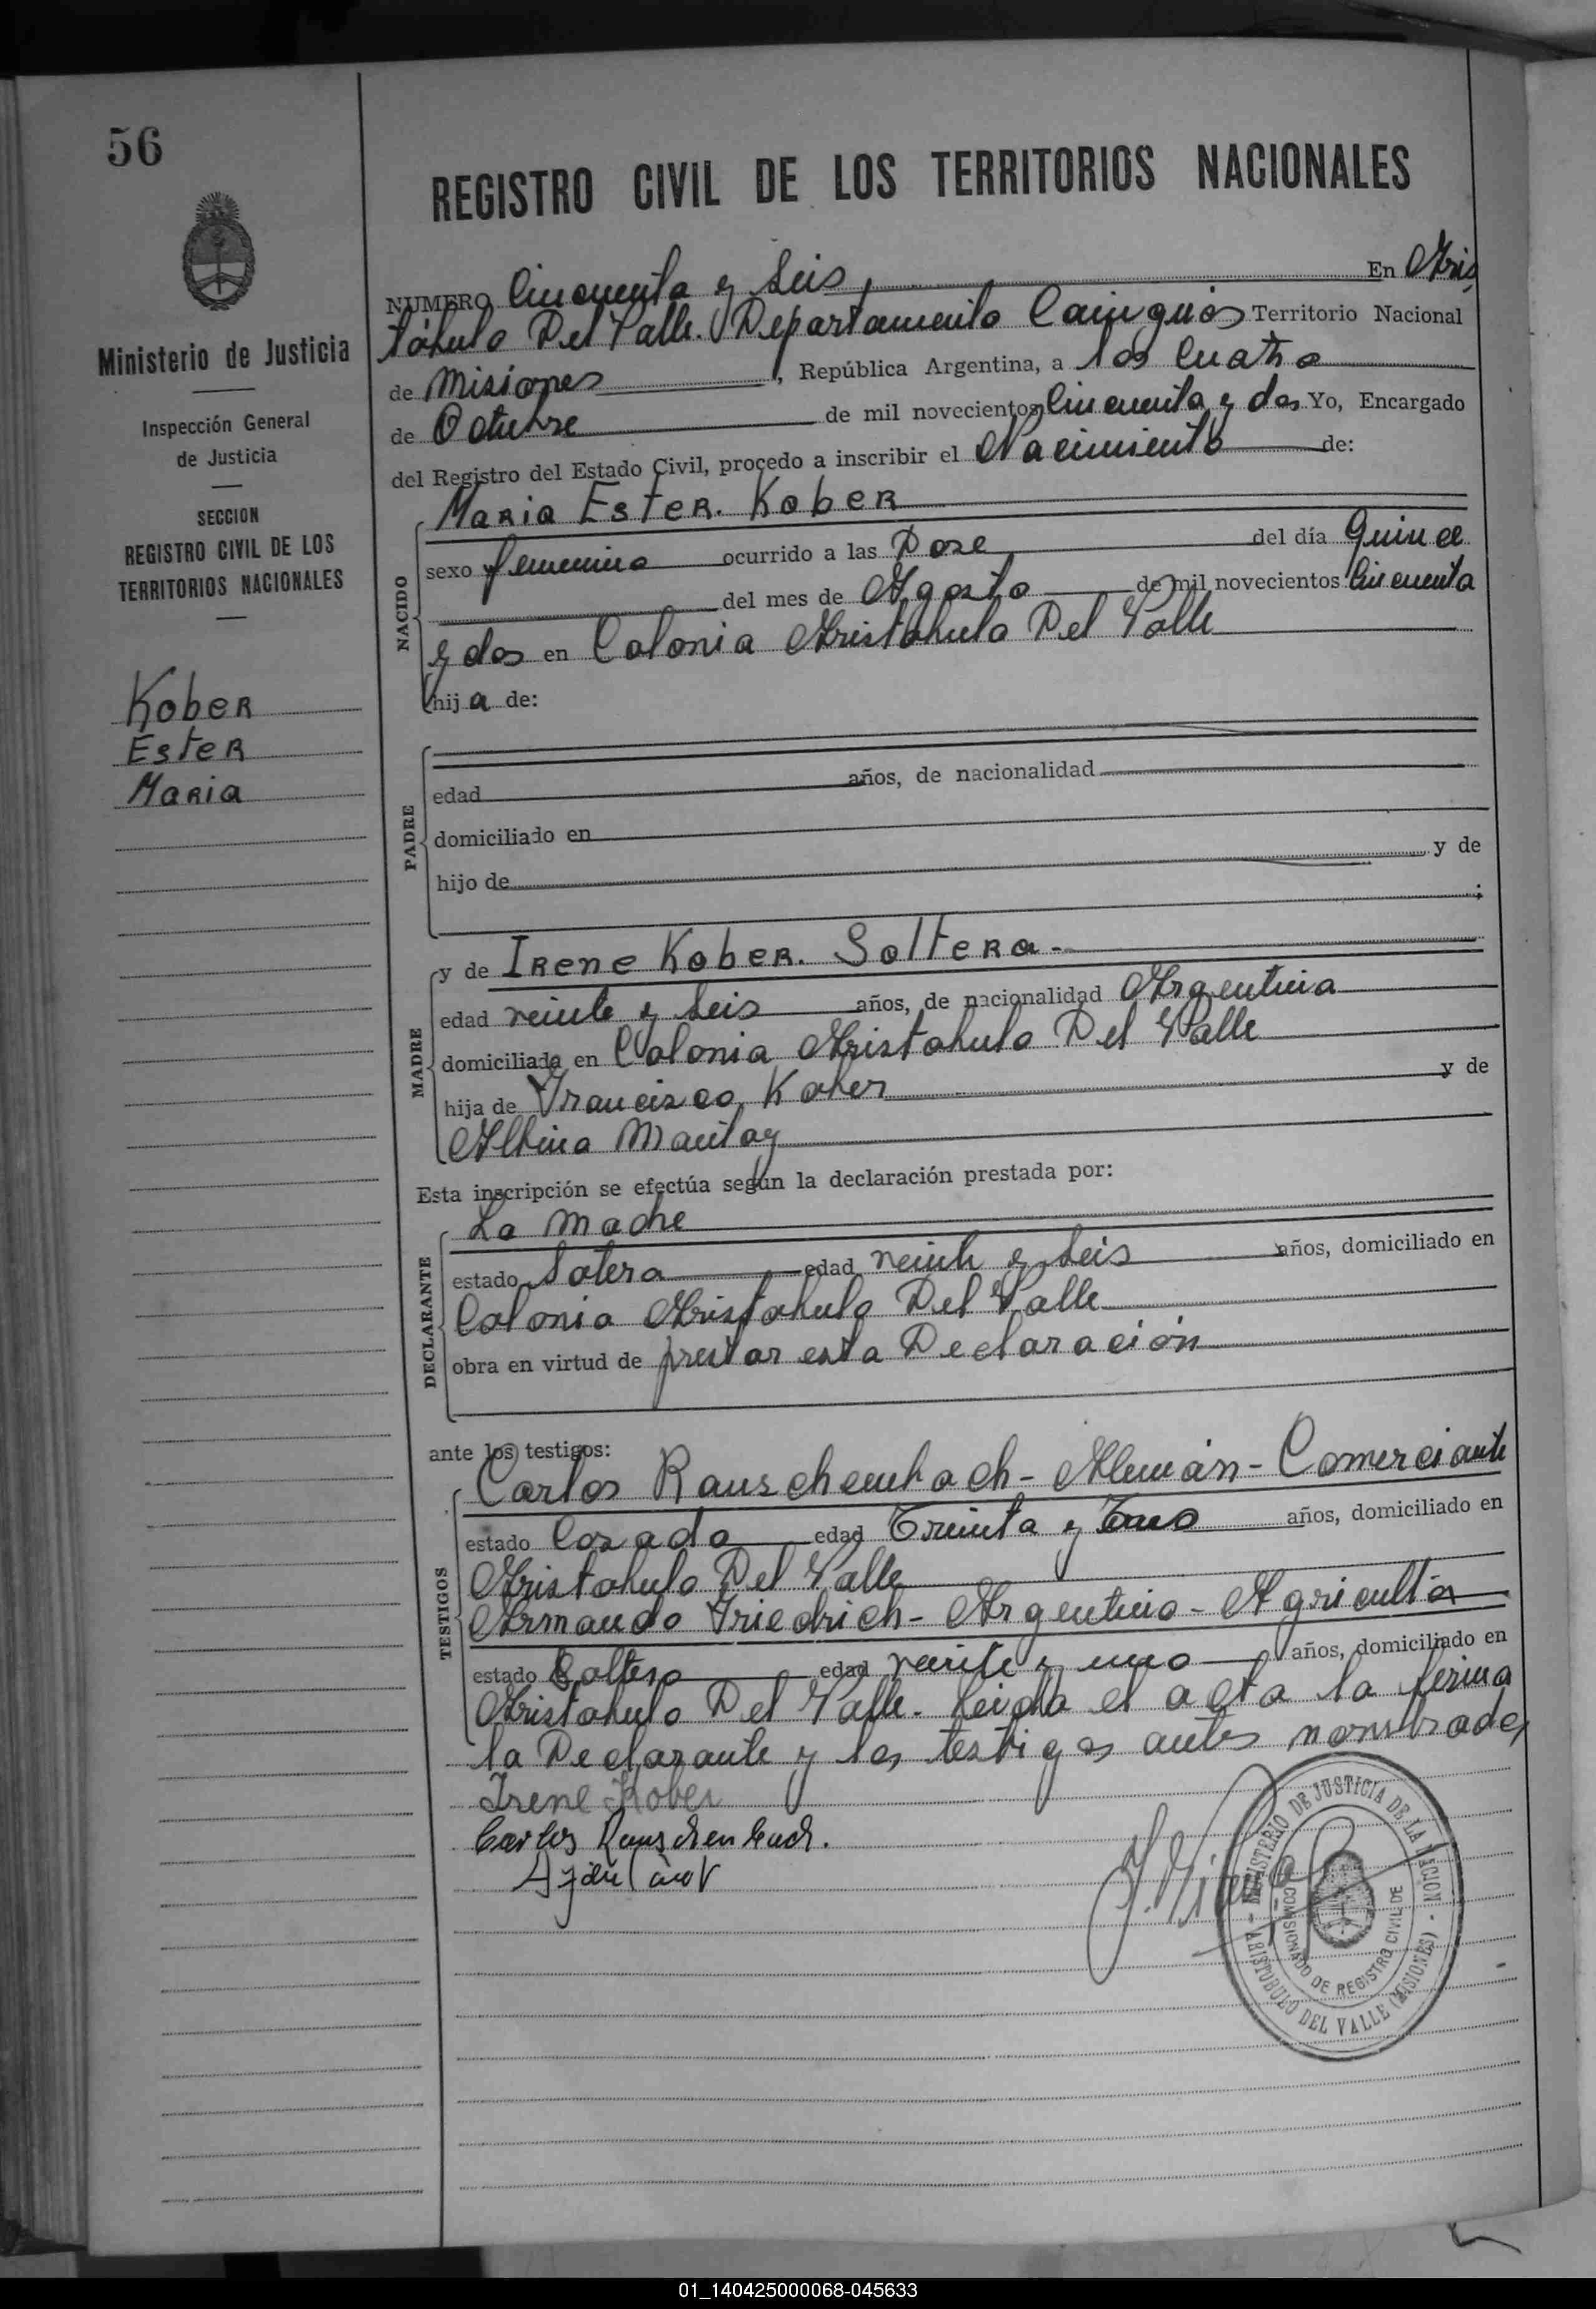 56
REGISTRO CIVIL DE LOS TERRITORIOS NACIONALES
Ministerio de Justicia
Inspección General
de Justicia
SECCION
REGISTRO CIVIL DE LOS
TERRITORIOS NACIONALES
Kober
Ester
Maria
NUMERO Cincuenta y Seis, En Aris
tóbulo Del Valle. Departamento Cainguás Territorio Nacional
de Misiones, República Argentina, a los Cuatro
de Octubre de mil novecientos Cincuenta y dos Yo, Encargado
del Registro del Estado Civil, procedo a inscribir el Nacimiento de:
NACIDO
Maria Ester. Kober
sexo femenino ocurrido a las Doze del día Quince
del mes de Agosto de mil novecientos Cincuenta
y dos en Colonia Aristobulo Del Valle
hija de:
PADRE
edad años, de nacionalidad
domiciliado en
hijo de y de
;
MADRE
y de Irene Kober. Soltera.-
edad veinte y Seis años, de nacionalidad Argentina
domiciliada en Colonia Aristobulo Del Valle
hija de Francisco Kober y de
Albina Mantay
Esta inscripción se efectúa según la declaración prestada por:
DECLARANTE
La Madre
estado Sotera edad veinte y Seis años, domiciliado en
Colonia Aristobulo Del Valle
obra en virtud de prestar esta Declaración
ante los testigos:
TESTIGOS
Carlos Rauschembach - Alemán - Comerciante
estado Cozado edad Treinta y años, domiciliado en
Aristobulo Del Valle
Armando Friedrich - Argentino - Agricultor
estado Soltero edad veinte y uno años, domiciliado en
Aristobulo Del Valle. Leida el acta la firma
la Declarante y los testigos antes nombrados
Irene Kober
Carlos Rauschenbach.
MINISTERIO DE JUSTICIA DE LA NACION
COMISIONADO DE REGISTRO CIVIL DE
ARISTOBULO DEL VALLE (MISIONES)
01_140425000068-045633